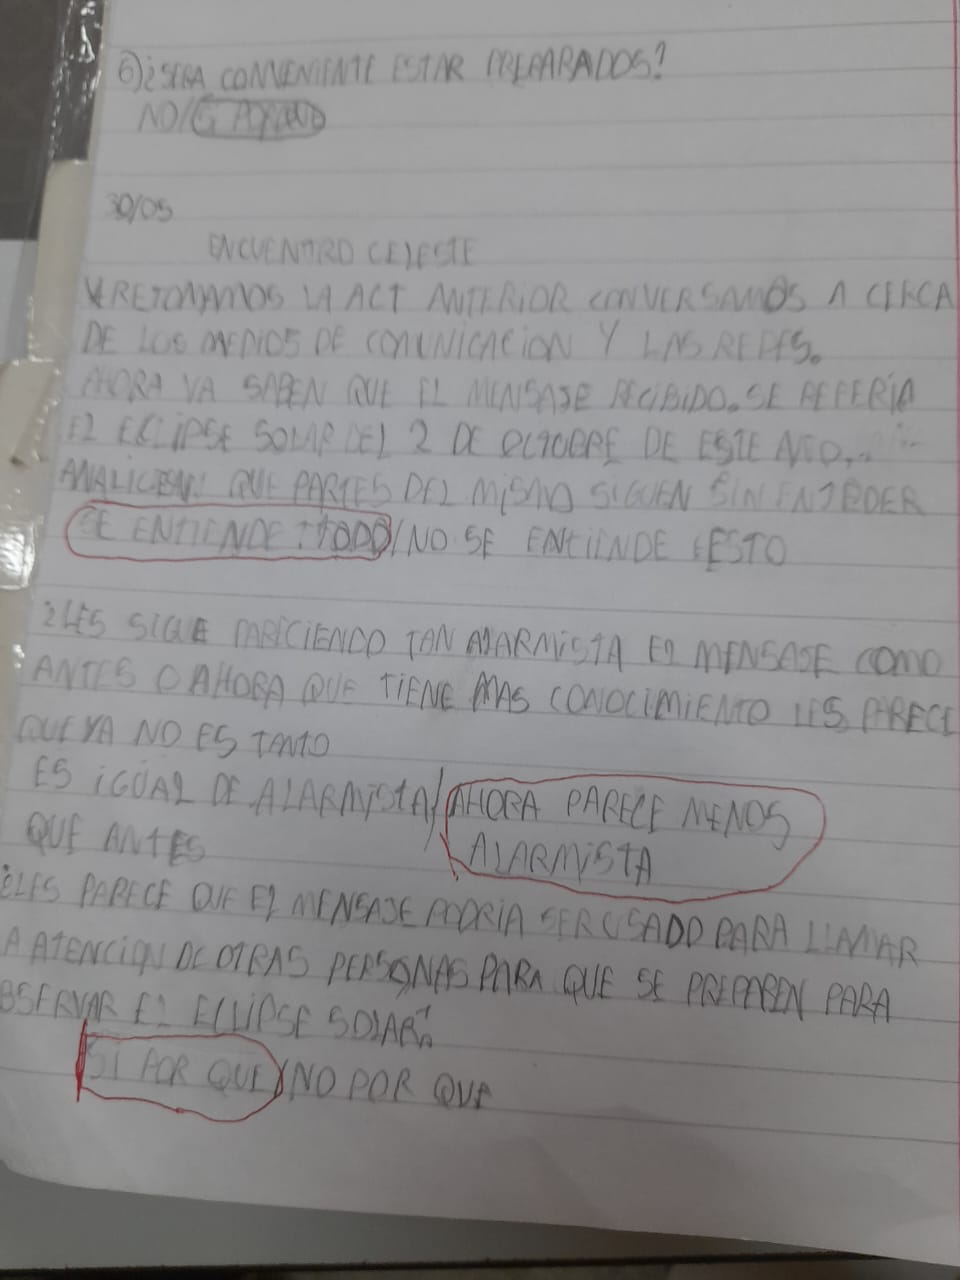 6) ¿SERA CONVENIENTE ESTAR PREPARADOS?
NO/SI PORQUE
30/05
ENCUENTRO CELESTE
RETOMAMOS LA ACT ANTERIOR CONVERSAMOS A CERCA
DE LOS MEDIOS DE COMUNICACION Y LAS REDES.
AHORA YA SABEN QUE EL MENSAJE RECIBIDO. SE REFERÍA
EL ECLIPSE SOLAR DEL 2 DE OCTUBRE DE ESTE AÑO..
QUE PARTES DEL MISMO SIGUEN SIN ENTEDER
SE ENTIENDE TODO/NO SE ENTIENDE ESTO
¿LES SIGUE PARECIENDO TAN ALARMISTA EL MENSAJE COMO
ANTES O AHORA QUE TIENE MAS CONOCIMIENTO LES PARECE
QUE YA NO ES TANTO
ES IGUAL DE ALARMISTA/AHORA PARECE MENOS
QUE ANTES ALARMISTA
¿LES PARECE QUE EL MENSAJE PODRIA SER USADO PARA LLMAR
A ATENCION DE OTRAS PERSONAS PARA QUE SE PREPAREN PARA
OBSERVAR EL ECLIPSE SOLAR?
SI POR QUE/NO POR QUE